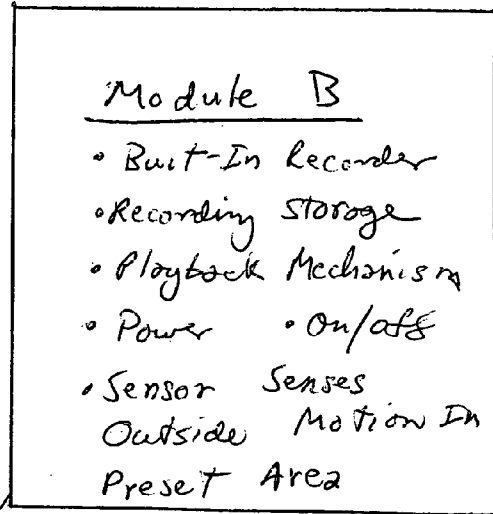 Module B
• Buit-In Recorder
• Recording Storage
• Playback Mechanism
• Power • On/off
• Sensor Senses
Outside Motion In
Preset Area